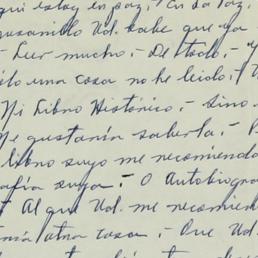 qui estoy en paz, En da Paz.
Ud. sabe que ya
- Leer mucho.- De todo.- "
ólo una cosa no he leído,
Mi Libro Histórico.- Sino
Me gustaría saberla.-
libro suyo me recomienda
afía suya.- O Autobiogra
Al que Ud. me recomien
otra cosa.- Que Ud.